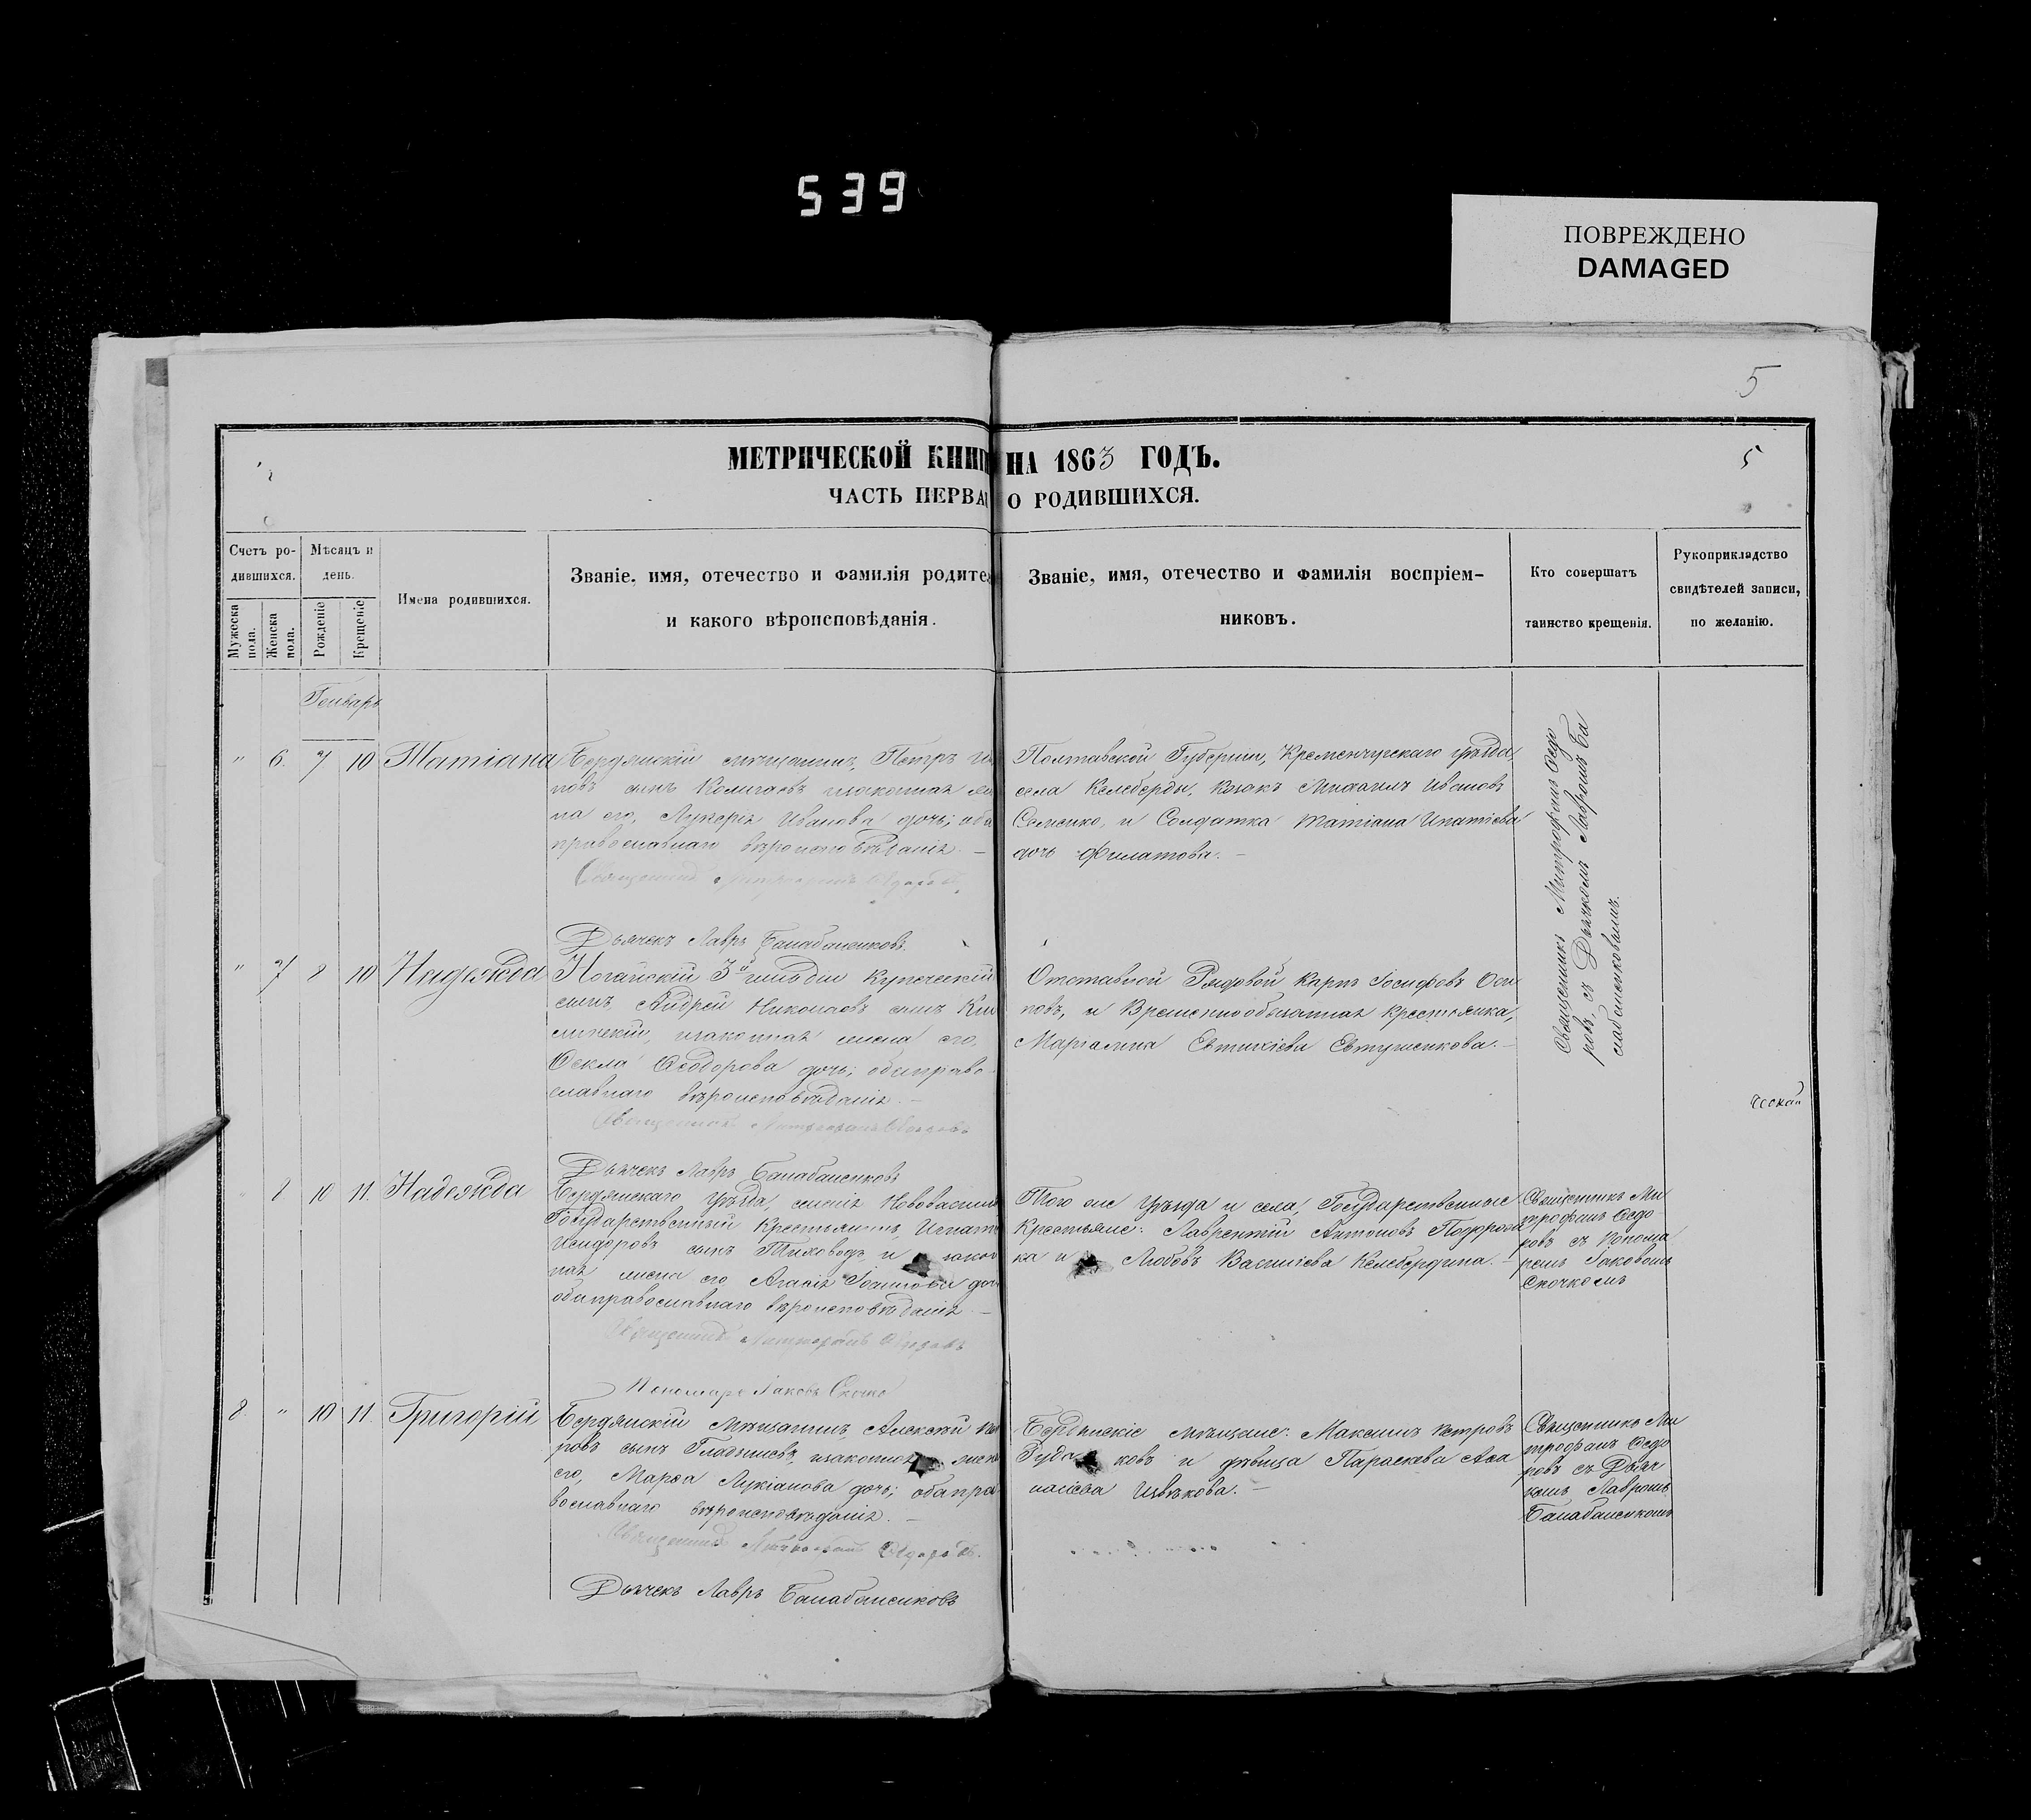 539
ПОВРЕЖДЕНО
DAMAGED
5
МЕТРИЧЕСКОЙ КНИГ НА 1863 ГОДЪ.
5
ЧАСТЬ ПЕРВАЯ О РОДИВШИХСЯ.
Счетъ ро-
дившихся.
Мужеска пола.
Женска пола.
Мѣсяцъ и
день.
Рожденіе
Крещеніе
Имена родившихся.
Званіе, имя, отечество и фамилія родите
и какого вѣроисповѣданія.
Званіе, имя, отечество и фамилія воспріем-
никовъ.
Кто совершатъ
таинство крещенія.
Рукоприкладство
свидѣтелей записи,
по желанію.
Генварь
" 6. 7 10 Татіана
Бердянскій мѣщанинъ, Петръ
повъ сынъ законная
на его, Лукерія Иванова дочь; оба
православнаго вѣроисповѣданія. —
Священникъ Митрофанъ Ѳедоровъ
Дьячекъ Лавръ Балабаненковъ.
Полтавской Губерніи, Кременчугскаго уѣзда,
села Келеберды, Козакъ Михаилъ Ивановъ
Семенко, и Солдатка Татіана Ипатіева
дочь Филатова. —
Священникъ Митрофанъ Ѳедо
ровъ, съ Дьячкомъ Лавромъ Ба
лабаненковымъ.
" 7 8 10 Надежда
Ногайскій 3й гильдіи купеческій
сынъ, Андрей Николаевъ сынъ
линскій, законная жена его,
Ѳекла Ѳеодорова дочь; оба право
славнаго вѣроисповѣданія. —
Священникъ Митрофанъ Ѳедоровъ
Дьячекъ Лавръ Балабаненковъ
Отставной Рядовой Карпъ Іосифовъ Оси
повъ, и Временнообязанная крестьянка,
Маріамна Евтихіева Евтушенкова. —
ческай
8 10 11. Надежда
Бердянскаго уѣзда, селенія Нововасил
Государственный Крестьянинъ, Игнат
Исидоровъ сынъ и закон
ная жена его Агаѳія Іоаннова до
оба православнаго вѣроисповѣданія —
Священникъ Митрофанъ Ѳедоровъ
Пономарь Іаковъ
Того же Уѣзда и села, Государственные
Крестьяне: Лаврентій Антоновъ
ка и Любовь Васильева Келебердина. —
Священникъ Ми
трофанъ Ѳедо
ровъ съ Понома
ремъ Іаковомъ
8. " 10 11. Григорій
Бердянскій мѣщанинъ, Алексѣй
ровъ сынъ Гладышевъ, законная жен
его, Марѳа Лукіанова дочь; оба пра
вославнаго вѣроисповѣданія. —
Священникъ Митрофанъ Ѳедоровъ.
Дьячекъ Лавръ Балабаненковъ
Бердянскіе мѣщане: Максимъ Петровъ
ковъ и дѣвица Параскева Аѳа
насіева Цвѣкова. —
Священникъ Ми
трофанъ Ѳедо
ровъ съ Дьяч
комъ Лавромъ
Балабаненкомъ